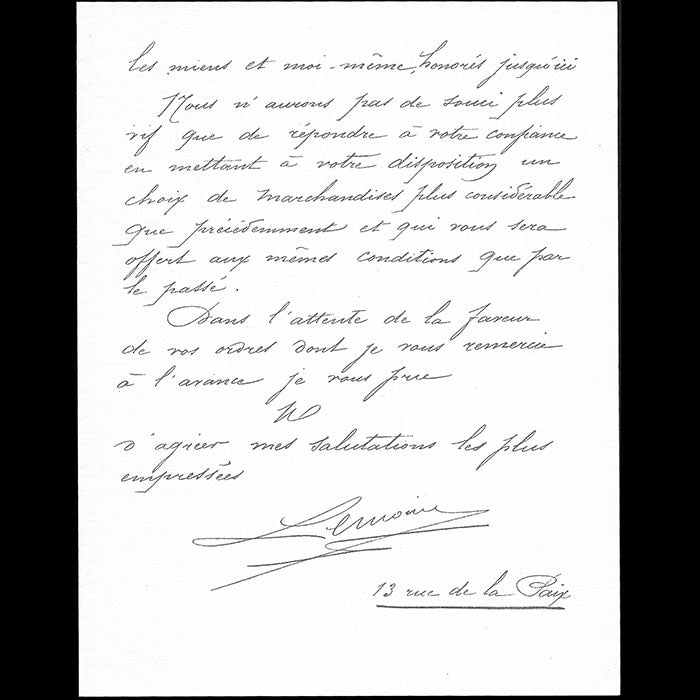 les miens et moi-même, honorés jusqu'ici
Nous n'aurons pas de souci plus
vif que de répondre à votre confiance
en mettant à votre disposition un
choix de marchandises plus considérable
que précédemment et qui vous sera
offert aux mêmes conditions que par
le passé.
Dans l'attente de la faveur
de vos ordres dont je vous remercie
à l'avance je vous prie
M
d'agréer mes salutations les plus
empressées
Lemoine
13 rue de la Paix